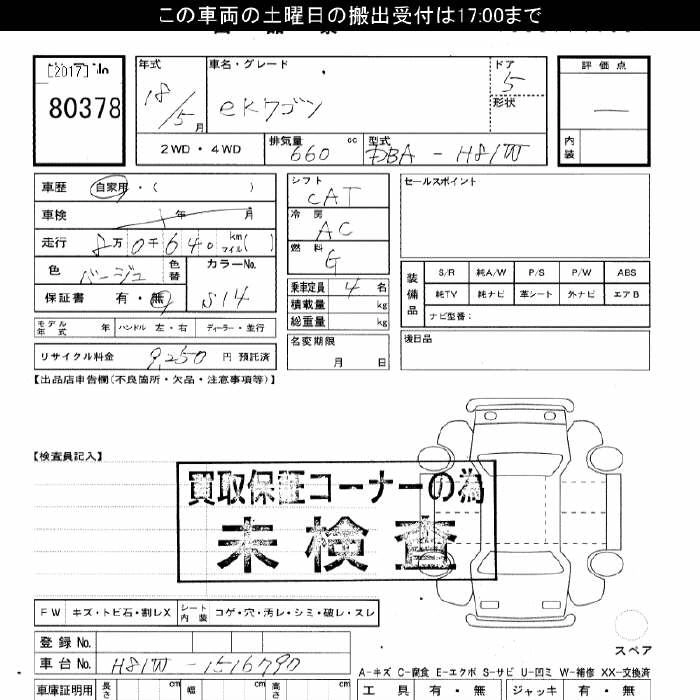 この車両の土曜日の搬出受付は17:00まで
[2017] No
80378
年式
18/5月
車名・グレード
eKワゴン
ドア
5
形状
評価点
内装
2WD・4WD
排気量 660 cc
型式 DBA - H81W
車歴 自家用・( )
車検 年 月
走行 8万0千640 km マイル( )
色 ベージュ 色替
カラーNo. S14
保証書 有・無
シフト CAT
冷房 AC
燃料 G
乗車定員 4 名
積載量 kg
総重量 kg
名変期限
月 日
セールスポイント
装備品
S/R 純A/W P/S P/W ABS
純TV 純ナビ 革シート 外ナビ エアB
ナビ型番:
後日品
モデル年式 年 ハンドル 左・右 ディーラー・並行
リサイクル料金 9,250 円 預託済
【出品店申告欄(不良箇所・欠品・注意事項等)】
【検査員記入】
買取保証コーナーの為
未検査
FW キズ・トビ石・割レX シート内装 コゲ・穴・汚レ・シミ・破レ・スレ
登録 No.
車台 No. H81W - 1516790
スペア
A-キズ C-腐食 E-エクボ S-サビ U-凹ミ W-補修 XX-交換済
車庫証明用 長さ cm 幅 cm 高さ cm
工具 有・無 ジャッキ 有・無